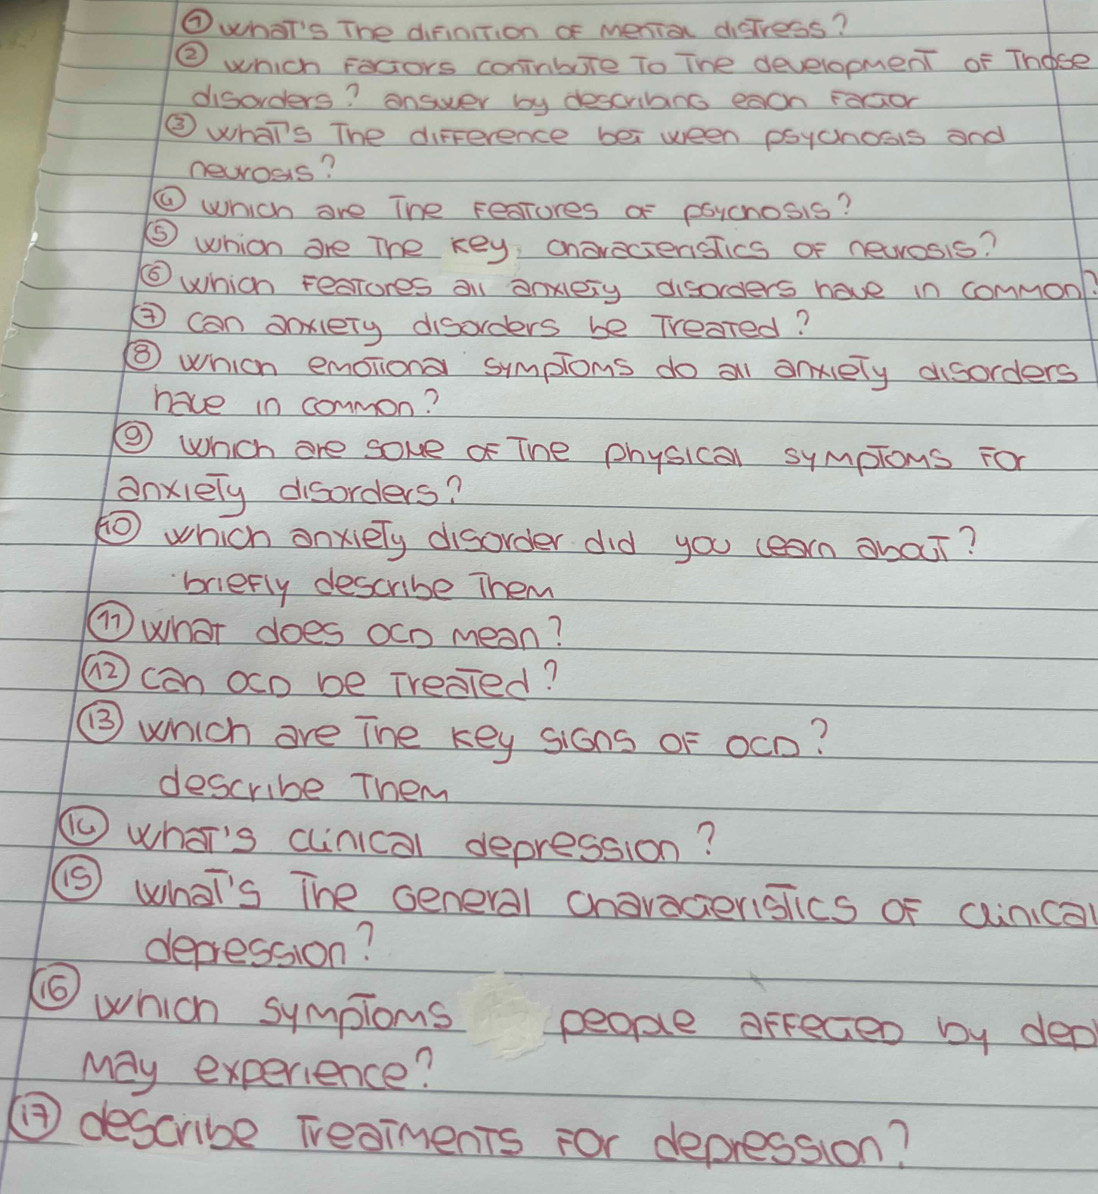 ① what's The difinition of mental distress?
② which factors contribute To The development of Those
disorders? answer by describing each factor
③ what's The difference between psychosis and
neurosis?
④ which are The features of psychosis?
⑤ which are The key characteristics of neurosis?
⑥ which features all anxiety disorders have in common?
⑦ can anxiety disorders be Treated?
⑧ which emotional symptoms do all anxiety disorders
have in common?
⑨ which are some of The physical symptoms for
anxiety disorders?
⑩ which anxiety disorder did you learn about?
briefly describe Them
⑪ what does OCD mean?
⑫ can OCD be Treated?
⑬ which are The key signs of OCD?
describe Them
⑭ what's clinical depression?
⑮ what's The general characteristics of clinical
depression?
⑯ which symptoms people affected by dep
may experience?
⑰ describe Treatments for depression?